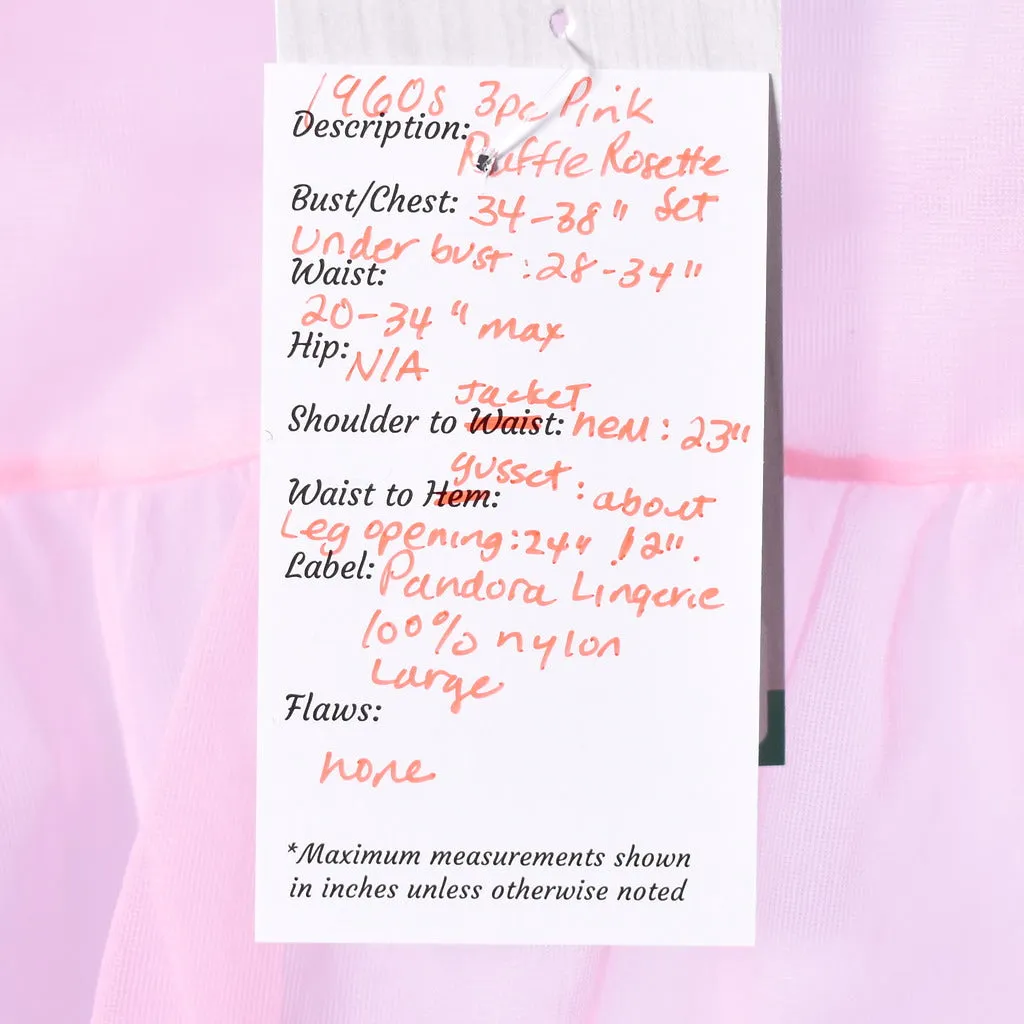 1960s 3pc Pink
Description:
Ruffle Rosette
Bust/Chest: 34-38" Set
Under bust: 28-34"
Waist:
20-34" max
Hip: N/A
Jacket
Shoulder to Waist: hem: 23"
gusset
Waist to Hem: : about
Leg opening: 24" 12".
Label: Pandora Lingerie
100% nylon
Large
Flaws:
none
*Maximum measurements shown
in inches unless otherwise noted